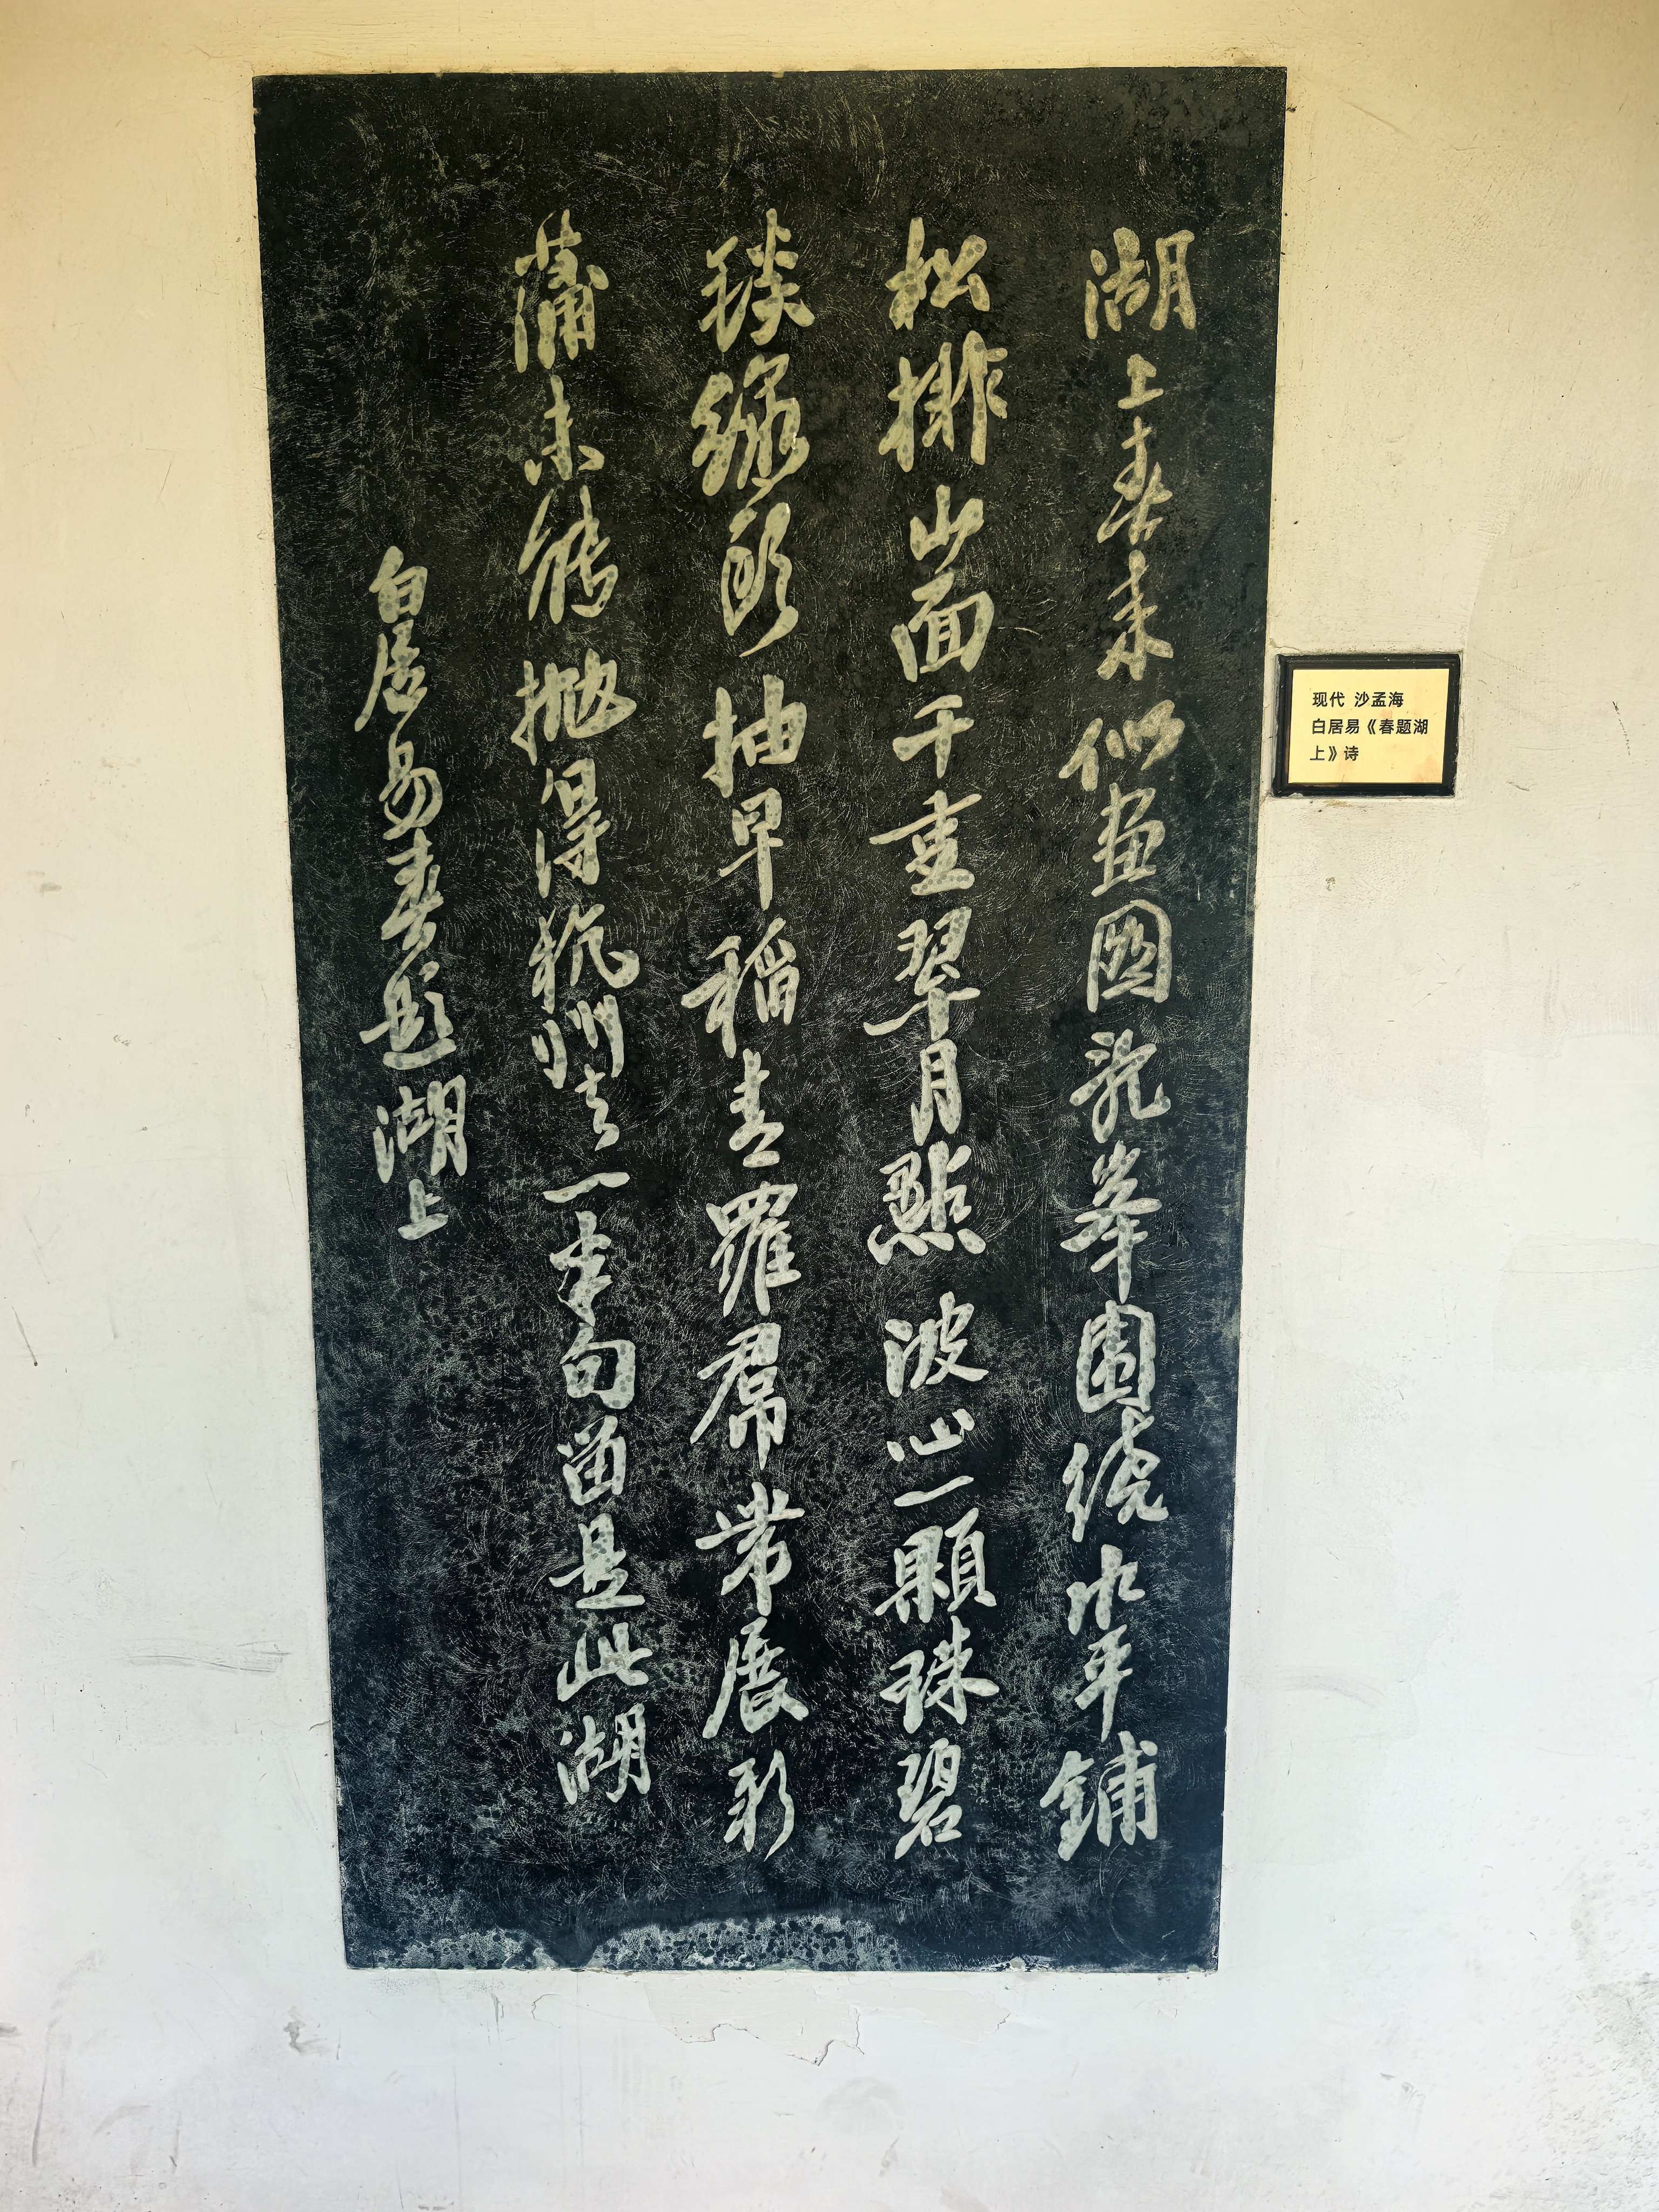 湖上春来似画图乱峯围绕水平铺
松排山面千重翠月點波心一顆珠碧
毯線頭抽早稻青羅帬带展新
蒲未能抛得杭州去一半句留是此湖
白居易春題湖上
现代 沙孟海
白居易《春题湖
上》诗